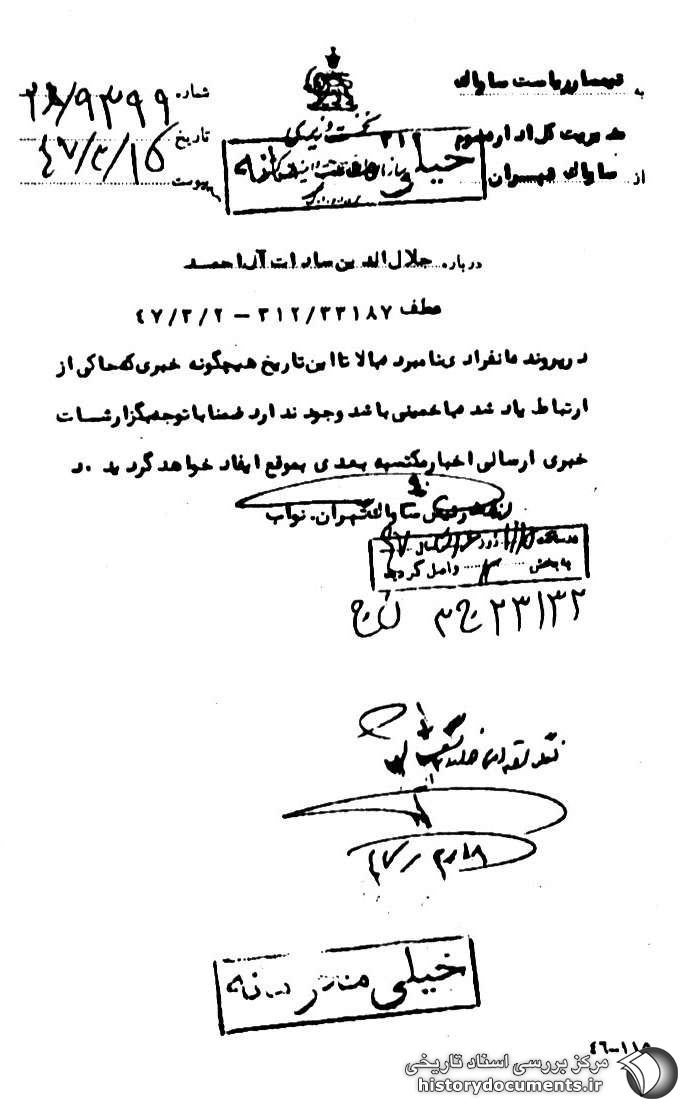 به تیمسار ریاست ساواک
شماره ۲۸/۹۳۹۹
نخست وزیری
مدیریت کل اداره سوم ۳۱۲
تاریخ ۴۷/۳/۱۵
از ساواک تهران
خیلی محرمانه
پیوست
درباره جلال الدین سادات آل احمد
عطف ۳۱۲/۳۳۱۸۷ - ۴۷/۲/۲
در پرونده انفرادی نامبرده بالا تا این تاریخ هیچگونه خبری که حاکی از
ارتباط یاد شده با خمینی باشد وجود ندارد ضمنا با توجه بگزارشات
خبری ارسالی اخبار مکتسبه بعدی بموقع ایفاد خواهد گردید. د
رئیس ساواک تهران. نواب
ساعت روز سال ۴۷
به بخش واصل گردید
۲۳۱۳۲
۴۷/۳/۱۸
خیلی محرمانه
۴۶-۱۱۵
مرکز بررسی اسناد تاریخی
historydocuments.ir